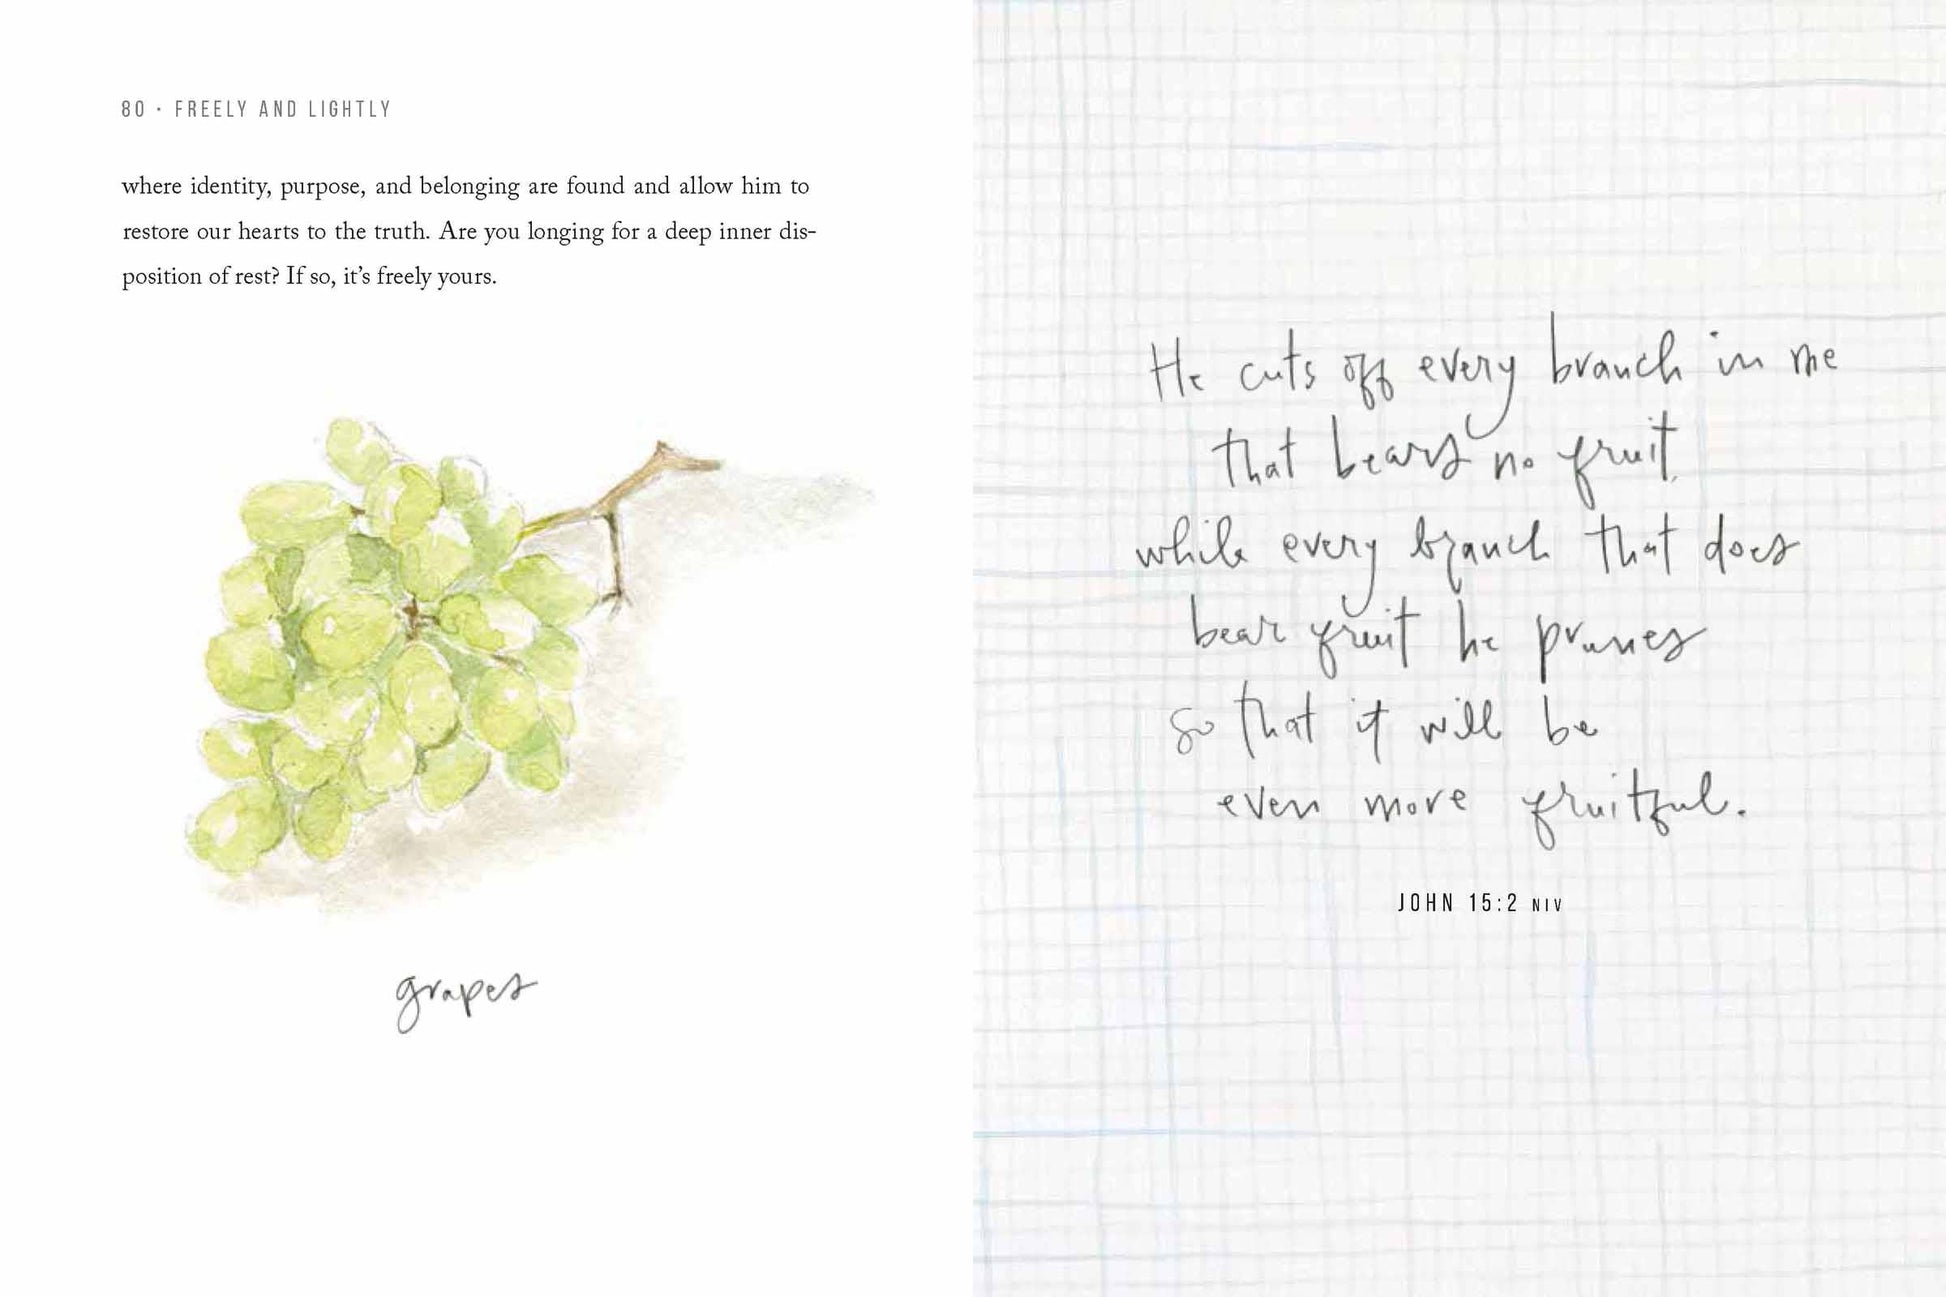 80 · FREELY AND LIGHTLY
where identity, purpose, and belonging are found and allow him to
restore our hearts to the truth. Are you longing for a deep inner dis-
position of rest? If so, it's freely yours.
grapes
He cuts off every branch in me
that bears no fruit,
while every branch that does
bear fruit he prunes
so that it will be
even more fruitful.
JOHN 15:2 NIV